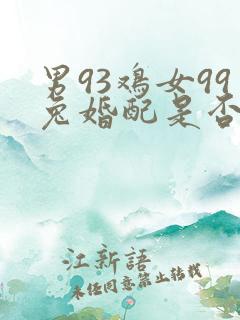 男93鸡女99
兔婚配是否
江新語
未经同意禁止转载